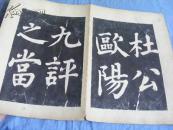 杜公
歐陽
九評
之當